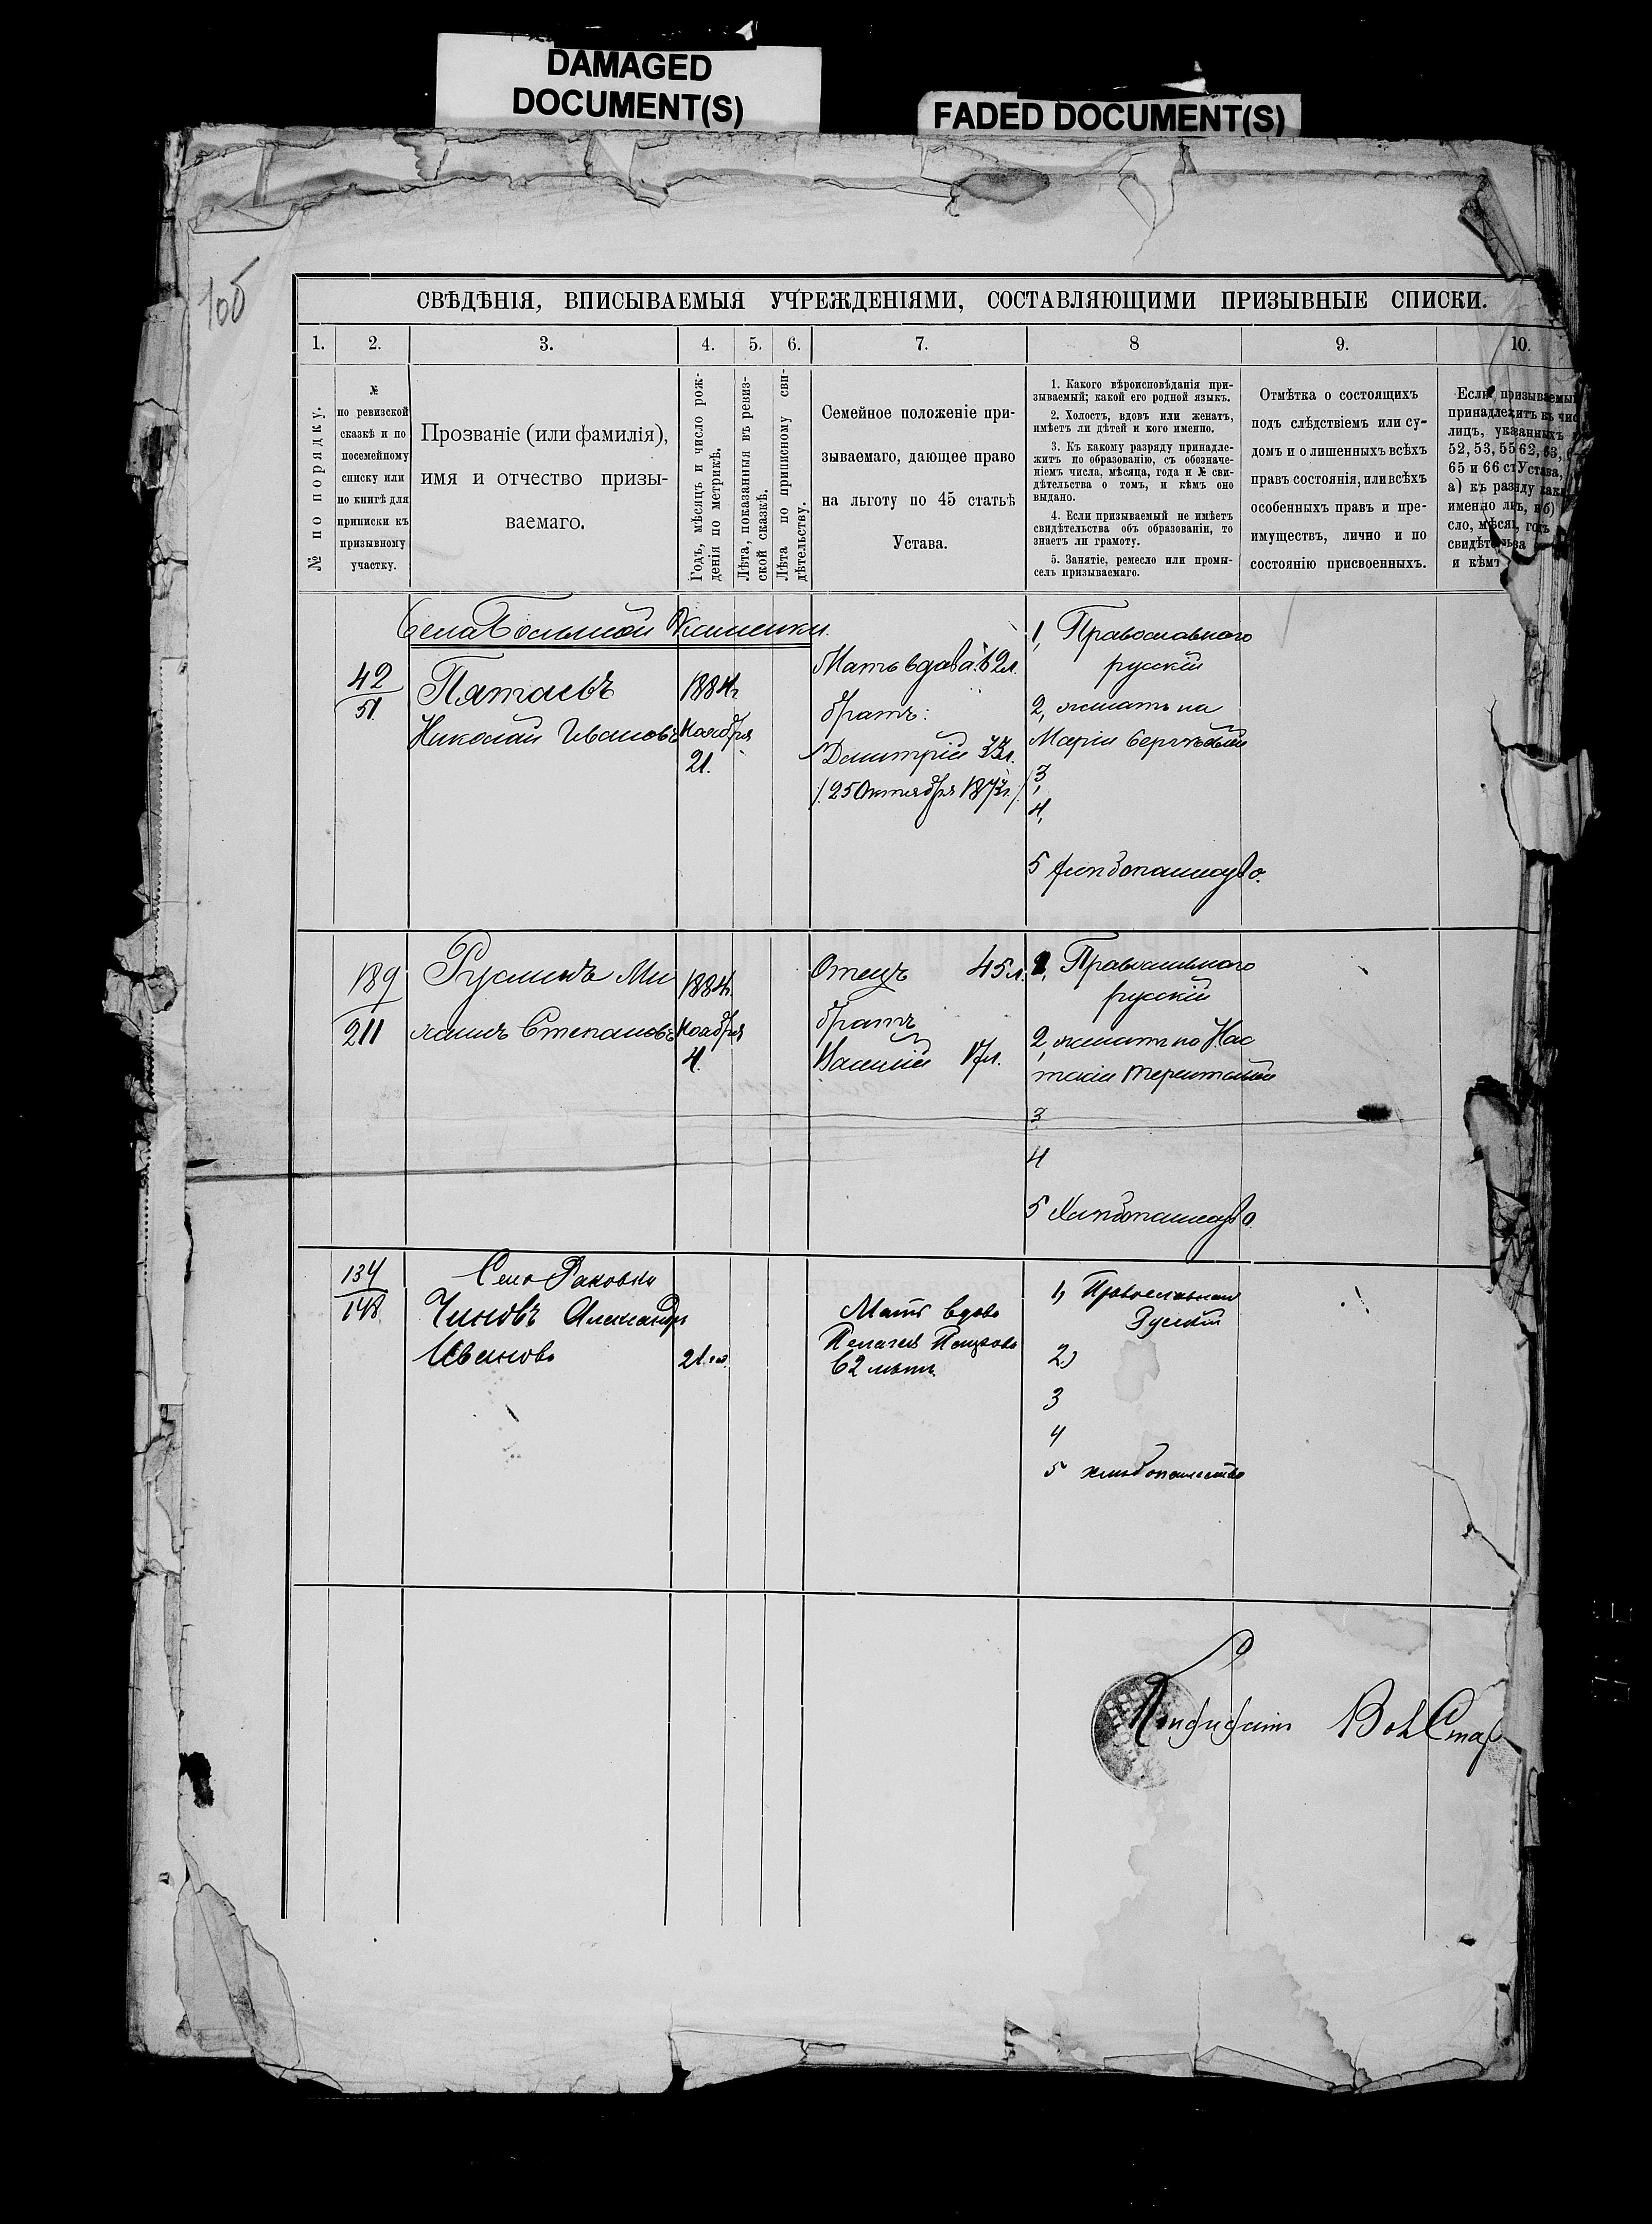 DAMAGED
DOCUMENT(S)
FADED DOCUMENT(S)
106
СВѢДѢНІЯ, ВПИСЫВАЕМЫЯ УЧРЕЖДЕНІЯМИ, СОСТАВЛЯЮЩИМИ ПРИЗЫВНЫЕ СПИСКИ.
1. 2. 3. 4. 5. 6. 7. 8 9. 10.
№ по порядку.
№
по ревизской
сказкѣ и по
посемейному
списку или
по книгѣ для
приписки къ
призывному
участку.
Прозваніе (или фамилія),
имя и отчество призы-
ваемаго.
Годъ, мѣсяцъ и число рож-
денія по метрикѣ.
Лѣта, показанныя въ ревиз-
ской сказкѣ.
Лѣта по приписному сви-
дѣтельству.
Семейное положеніе при-
зываемаго, дающее право
на льготу по 45 статьѣ
Устава.
1. Какого вѣроисповѣданія при-
зываемый; какой его родной языкъ.
2. Холостъ, вдовъ или женатъ,
имѣетъ ли дѣтей и кого именно.
3. Къ какому разряду принадле-
житъ по образованію, съ обозначе-
ніемъ числа, мѣсяца, года и № сви-
дѣтельства о томъ, и кѣмъ оно
выдано.
4. Если призываемый не имѣетъ
свидѣтельства объ образованіи, то
знаетъ ли грамоту.
5. Занятіе, ремесло или промы-
селъ призываемаго.
Отмѣтка о состоящихъ
подъ слѣдствіемъ или су-
домъ и о лишенныхъ всѣхъ
правъ состоянія, или всѣхъ
особенныхъ правъ и пре-
имуществъ, лично и по
состоянію присвоенныхъ.
Если призываемый
принадлежитъ къ чис
лицъ, указанныхъ
52, 53, 55 62, 63,
65 и 66 ст Устава,
а) къ
именно б)
сло, мѣсяц, годъ
свидѣтельства
и кѣмъ
Села Большой Каменки.
42
51.
Пятаевъ
Николай Ивановъ
1884г.
Ноября
21.
Мать вдова 62л.
братъ:
Дмитрій 33л.
/25 Октября 187 г./
1, Православнаго
русскій
2, женатъ на
Маріи Сергѣевой
3,
4,
5 хлѣбопашество.
189
211
Руслинъ Ми
хаилъ Степановъ
1884г.
Ноября
4.
Отецъ 45л.
братъ
Василій 17л.
1, Православнаго
русскій
2, женатъ на Нас
тасіи Терентьевой
3
4
5 Хлѣбопашество.
134
148.
Село Раковка
Чиновъ Александръ
Ивановъ
21 го.
Мать вдова
Пелагея Петрова
62 лѣтъ.
1, Православный
Русскій
2)
3
4
5 хлѣбопашество
Вол Стар